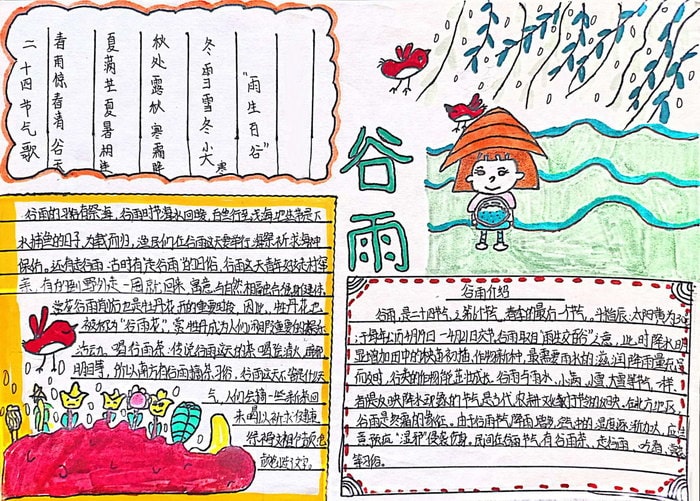 二十四节气歌
春雨惊春清谷天
夏满芒夏暑相连
秋处露秋寒霜降
冬雪雪冬小大寒
"雨生百谷"
谷雨
谷雨的习俗有祭海,谷雨时节海水回暖,百鱼行至浅海地带是下
水捕鱼的日子,为载而归,渔民们在谷雨这天要举行海祭祈求海神
保佑。还有走谷雨,古时有"走谷雨"的习俗,谷雨这天青年妇女走村串
亲,有的到野外走一圈就回来,寓意与自然相融合强身健体
谷雨前后也是牡丹花开的重要时段,因此,牡丹花也
被称为"谷雨花",赏牡丹成为人们闲暇重要的娱乐
活动。喝谷雨茶,传说谷雨这天的茶喝了会清火,
明目等,所以南方有谷雨摘茶习俗,谷雨这天不管是什么天
气,人们会摘一些新茶回
来喝以祈求健康
谷雨介绍
谷雨,是二十四节气之第6个节气,春季的最后一个节气。斗指辰;太阳黄经为30°
于每年公历4月19日—4月21日交节,谷雨取自"雨生百谷"之意,此时降水明
显增加田中的秧苗初插、作物新种,最需要雨水的滋润,降雨量充足
而及时,谷类的作物能茁壮成长。谷雨与雨水、小满、小雪、大雪等节气一样,
者是反映降水现象的节气,是古代农耕文化对于节令的反映,在北方地区
谷雨是终霜的象征。由于谷雨节气降雨增多,空气中的湿度逐渐加大,应
等习俗。